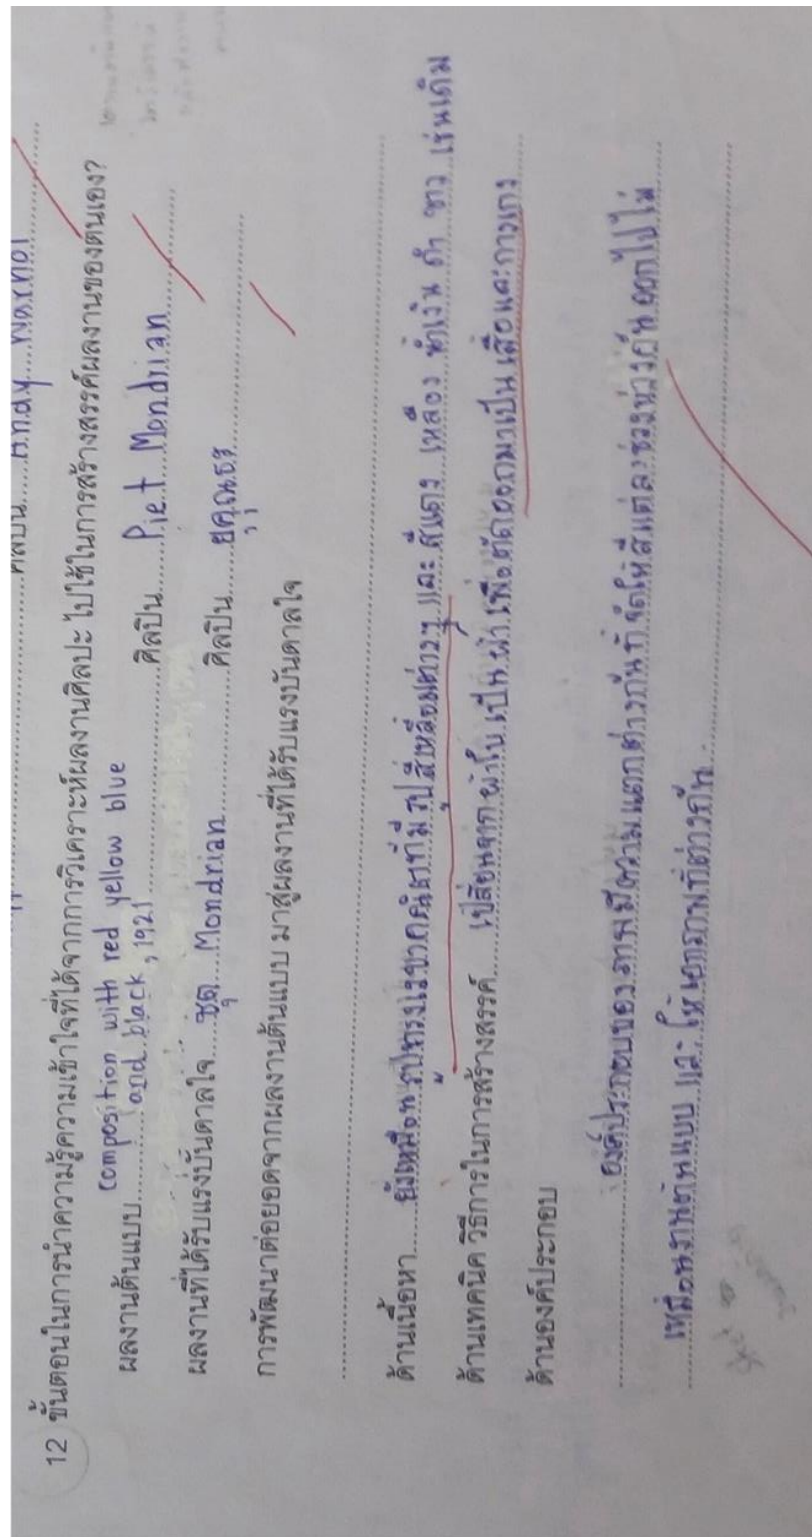 ศิลปิน Andy Warhol
12 ขั้นตอนในการนำความรู้ความเข้าใจที่ได้จากการวิเคราะห์ผลงานศิลปะ ไปใช้ในการสร้างสรรค์ผลงานของตนเอง?
composition with red yellow blue
ผลงานต้นแบบ and black, 1921 ศิลปิน Piet Mondrian
ผลงานที่ได้รับแรงบันดาลใจ ชุด Mondrian ศิลปิน
การพัฒนาต่อยอดจากผลงานต้นแบบ มาสู่ผลงานที่ได้รับแรงบันดาลใจ
ด้านเนื้อหา ยังเหมือนรูปทรงเรขาคณิตที่มีรูปสี่เหลี่ยมต่างๆ และ สีแดง เหลือง น้ำเงิน ดำ ขาว เช่นเดิม
ด้านเทคนิค วิธีการในการสร้างสรรค์ เปลี่ยนจาก ผ้าใบ เป็น ผ้า เพื่อตัดออกมาเป็น เสื้อและกางเกง
ด้านองค์ประกอบ
องค์ประกอบของภาพมีความแตกต่างกันที่ จัดให้สีแต่ละช่วงห่างกัน ออกไปไม่
เหมือนงานต้นแบบ และ ให้ ที่ต่างกัน